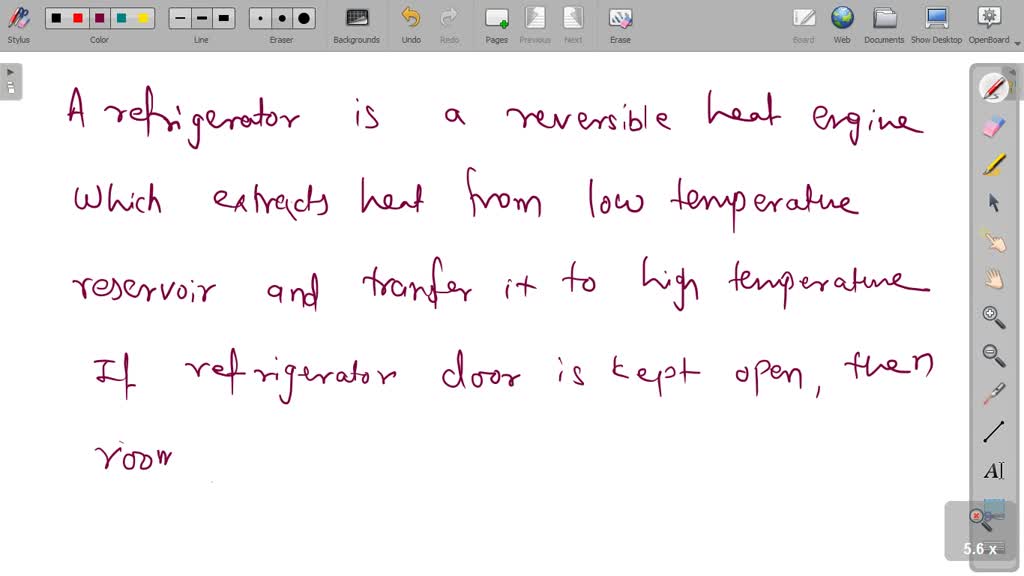 Stylus
Color
Line
Eraser
Backgrounds
Undo
Redo
Pages
Previous
Next
Erase
Board
Web
Documents
Show Desktop
OpenBoard
A refrigerator is a reversible heat engine
which extracts heat from low temperature
reservoir and transfer it to high temperature
If refrigerator door is kept open, then
room
5.6 x